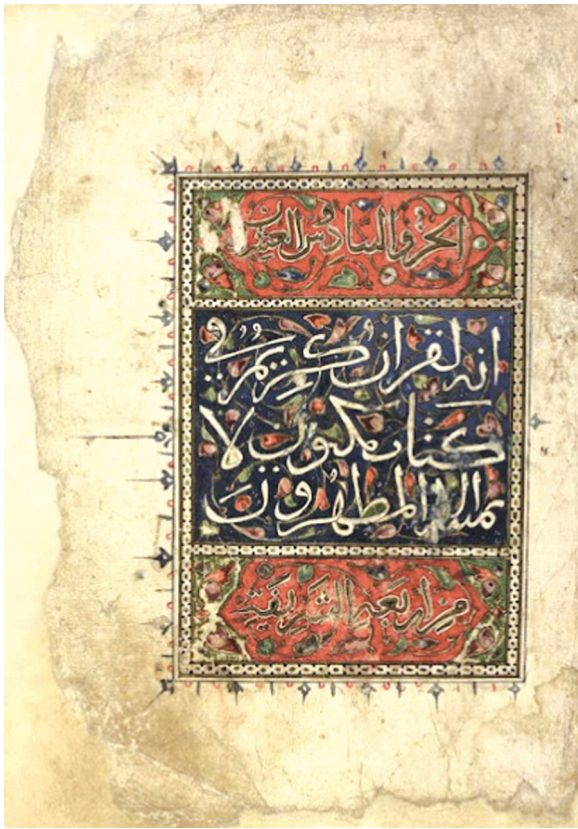 الجزو السادس العشرون
انه لقران كريم في
كتاب مكنون لا
يمسه الا المطهرون
من اربعه الشريفة